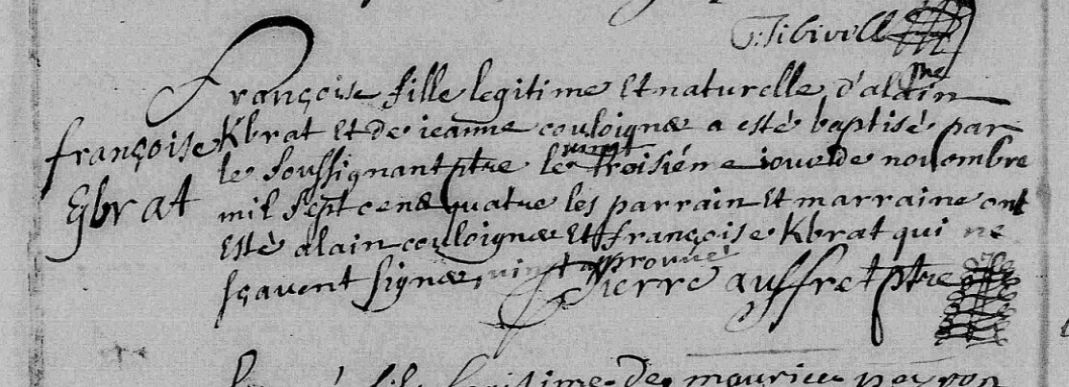 françoise
Kbrat
françoise fille legitime Et naturelle d'alain
Kbrat Et de ieanne couloignæ a esté baptisé par
le soussignant ptre le vingt troisiéme iour de novembre
mil sept cens quatre les parrain Et marraine ont
Esté alain couloignæ Et françoise Kbrat qui ne
sçavent signær, vingt approuvé
Pierre auffret ptre
fils legitime de maurice